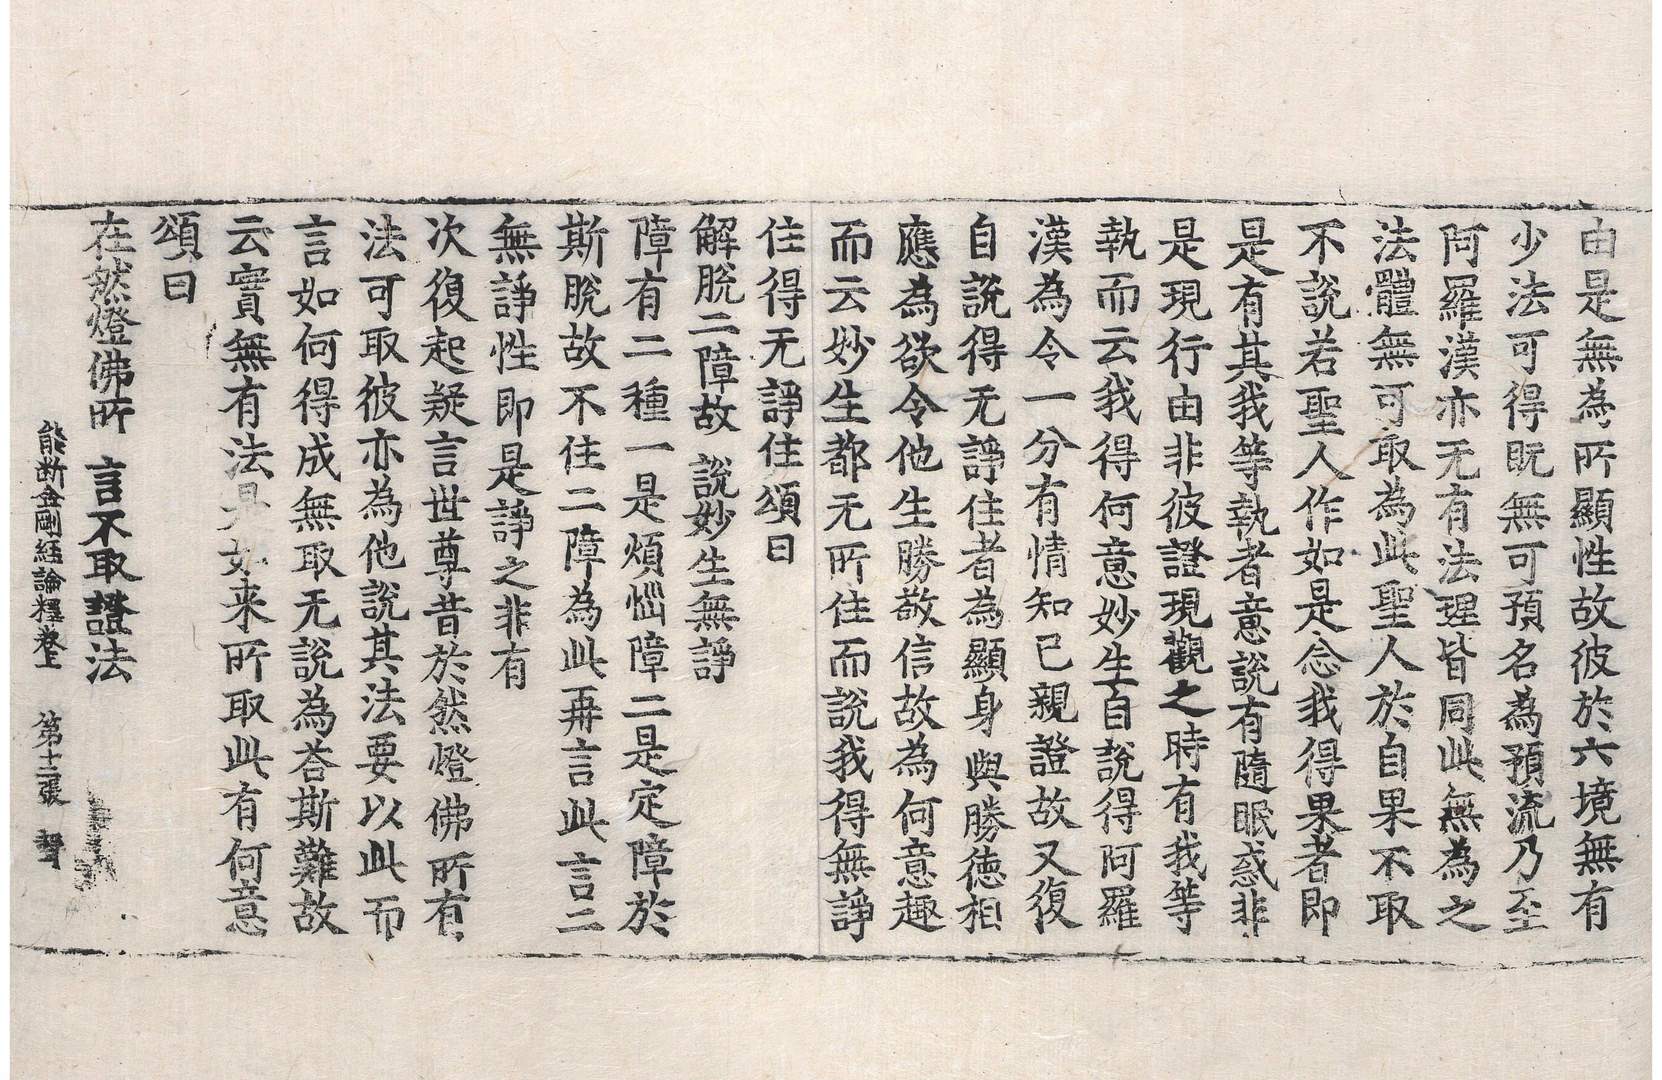 由是無為所顯性故彼於六境無有
少法可得既無可預名為預流乃至
阿羅漢亦无有法理皆同此無為之
法體無可取為此聖人於自果不取
不說若聖人作如是念我得果者即
是有其我等執者意說有隨眠惑非
是現行由非彼證現觀之時有我等
執而云我得何意妙生自說得阿羅
漢為令一分有情知已親證故又復
自說得无諍住者為顯身與勝德相
應為欲令他生勝敬信故為何意趣
而云妙生都无所住而說我得無諍
住得无諍住頌曰
解脫二障故 說妙生無諍
障有二種一是煩惱障二是定障於
斯脫故不住二障為此再言此言二
無諍性即是諍之非有
次復起疑言世尊昔於然燈佛所有
法可取彼亦為他說其法要以此而
言如何得成無取无說為荅斯難故
云實無有法是如来所取此有何意
頌曰
在然燈佛所 言不取證法
能斷金剛経論釋卷上 第十二張 聲